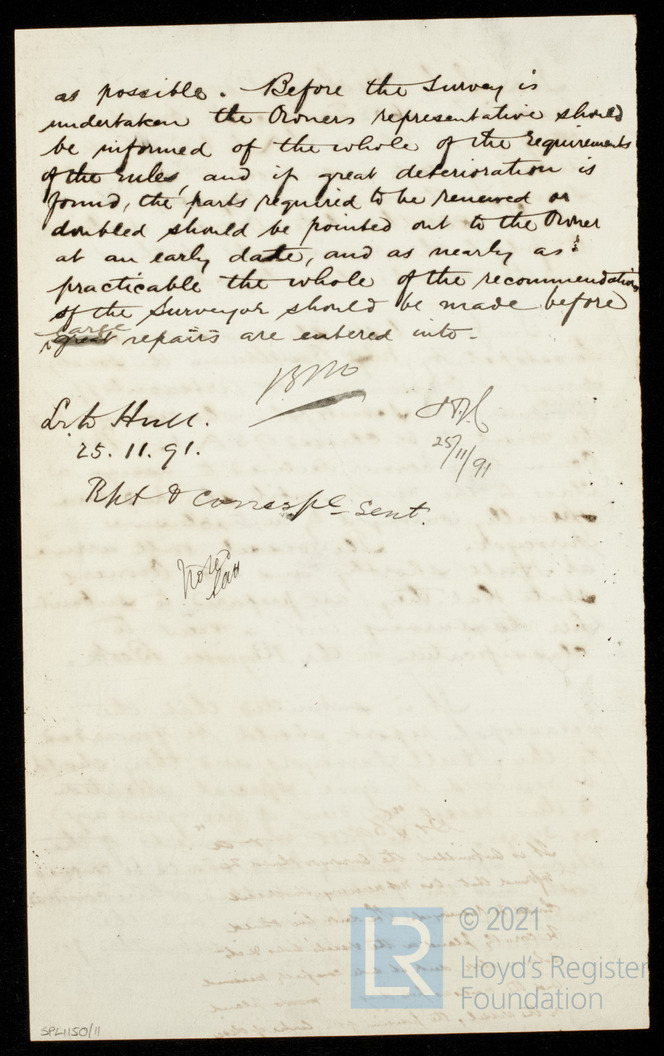 as possible. Before the Survey is
undertaken the Owners representative should
be informed of the whole of the requirements
of the rules, and if great deterioration is
found, the parts required to be renewed or
doubled should be pointed out to the Owner
at an early date, and as nearly as
practicable the whole of the recommendations
of the Surveyor should be made before
large
great repairs are entered into.
Hull.
25.11.91.
25/11/91
Rpt & Corresp ce sent.
Noted
© 2021
LR
Lloyd's Register
Foundation
SPL1150/11